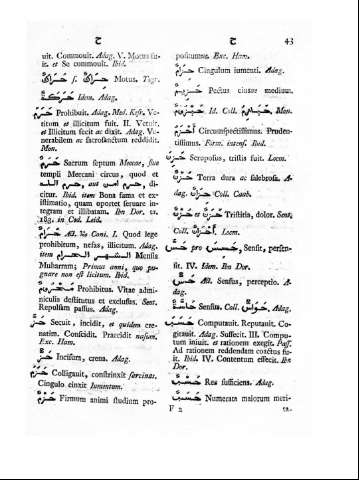 ح ح 43
uit. Commouit. Adag. V. Motus fu-
it. et Se commouit. Ibid.
حِرَاكٌ f. حَرَاكٌ Motus. Tigr.
حَرَكَةٌ Idem. Adag.
حَرَمَ Prohibuit. Adag. Mod. Kass. Ve-
titum et illicitum fuit. II. Vetuit,
et Illicitum fecit ac dixit. Adag. Ve-
nerabilem ac sacrosanctum reddidit.
Mon.
حَرَمٌ Sacrum septum Meccae, siue
templi Meccani circus, quod et
حرم الله aut حرم, di-
citur. Ibid. item Bona fama et ex-
istimatio, quam oportet seruare in-
tegram et illibatam. Ibn Dor. 12.
183. in Cod. Leid.
حَرَامٌ Ast. Vo Cani. I. Quod lege
prohibitum, nefas, illicitum. Adag.
item الشهر الحرام Mensis
Muharram; Primus anni, quo pu-
gnare non est licitum. Ibid.
مَحْرُومٌ Prohibitus. Vitae admi-
niculis destitutus et exclusus. Sent.
Repulsam passus. Adag.
حَزَّ Secuit, incidit, et quidem cre-
natim. Conscidit. Praecidit nasum.
Exc. Ham.
حَزٌّ Incisum, crena. Adag.
حَزَمَ Colligauit, constrinxit sarcinas.
Cingulo cinxit Iumentum.
حَزْمٌ Firmum animi studium pro-
positumue. Exc. Ham.
حِزَامٌ Cingulum iumenti. Adag.
حَيْزُومٌ Pectus eiusue medium.
حَيْزُومٌ Id. Coll. حَيَازِيمُ, Mon.
أَحْزَمُ Circumspectissimus. Pruden-
tissimus. Form. intens. Ibid.
حَزِنَ Scroposus, tristis fuit. Locm.
حَزْنٌ Terra dura ac salebrosa. A-
dag. حُزُونٌ Coll. Caab.
حُزْنٌ et حَزَنٌ Tristitia, dolor. Sent.
Coll. أَحْزَانٌ. Locm.
حَسَّ pro حَسَسَ, Sensit, persen-
sit. IV. Idem. Ibn Dor.
حِسٌّ Ast. Sensus, perceptio. A-
dag.
حَاسَّةٌ Sensus. Coll. حَوَاسُّ. Adag.
حَسَبَ Computauit. Reputauit. Co-
gitauit. Adag. Suffecit. III. Compu-
tum iniuit. et rationem exegit. Pass.
Ad rationem reddendam coactus fu-
it. Ibid. IV. Contentum effecit. Ibn
Dor.
حَسْبٌ Res sufficiens. Adag.
حَسَبٌ Numerata maiorum meri-
F 2 ta.